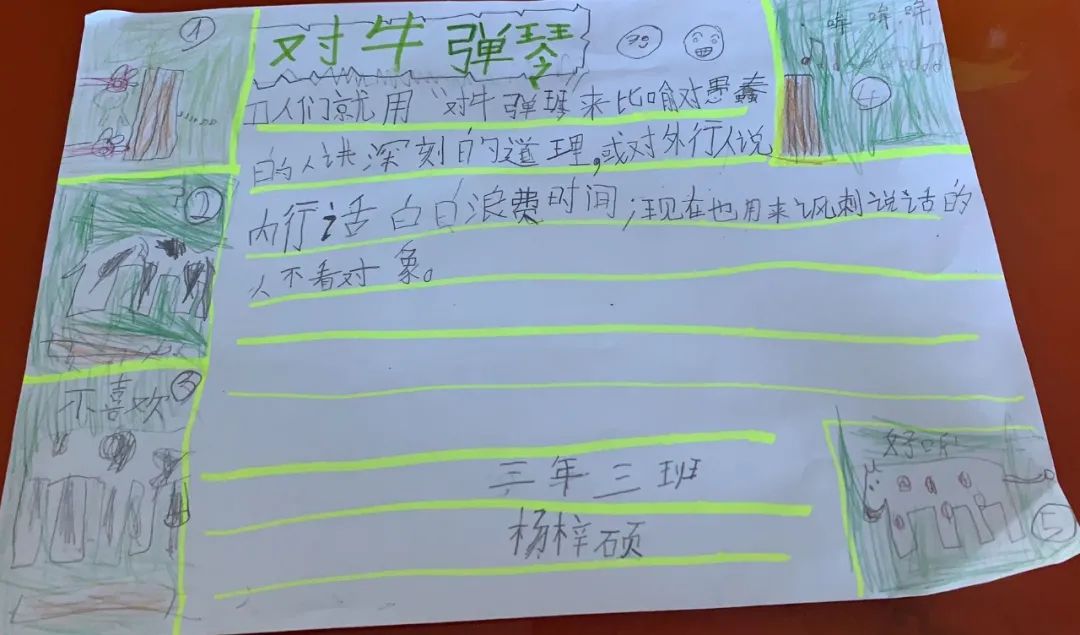 ①
对牛弹琴
④
哞哞哞
人们就用“对牛弹琴来比喻对愚蠢
的人讲深刻的道理,或对外行人说
内行话白白浪费时间;现在也用来讽刺说话的
人不看对象。
②
③
不喜欢
三年三班
杨梓硕
好听
⑤